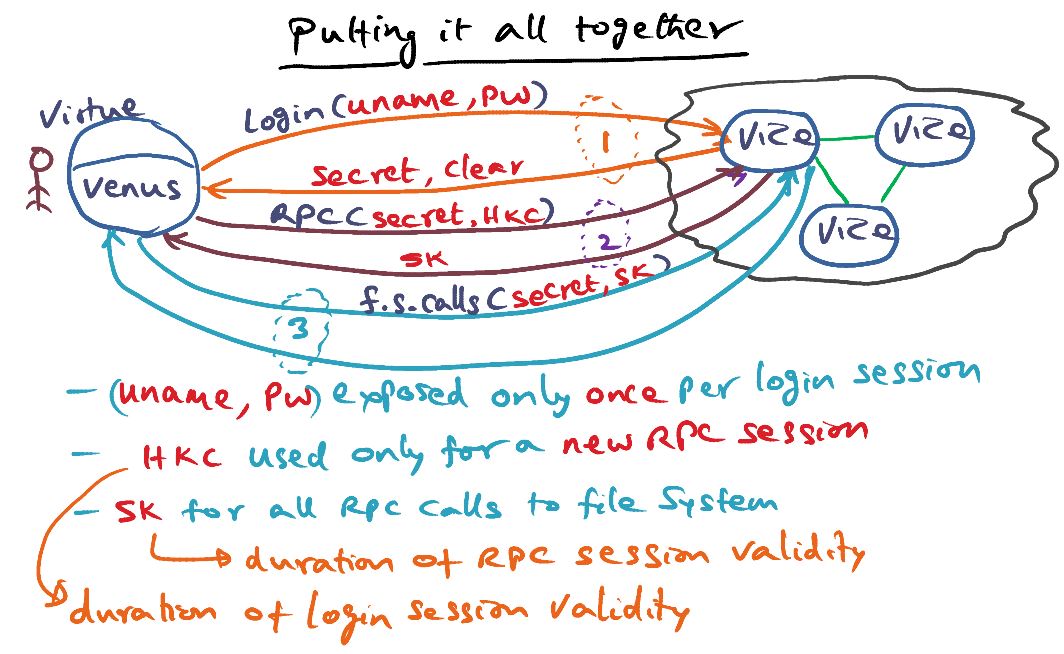 Putting it all together
Virtue
Login(uname, PW)
1
Vice
Vice
secret, clear
Venus
RPC(secret, HKC)
2
Vice
SK
f.s.calls(secret, SK)
3
- (uname, PW) exposed only once per login session
- HKC used only for a new RPC session
- SK for all RPC calls to file System
duration of RPC session validity
duration of login session validity